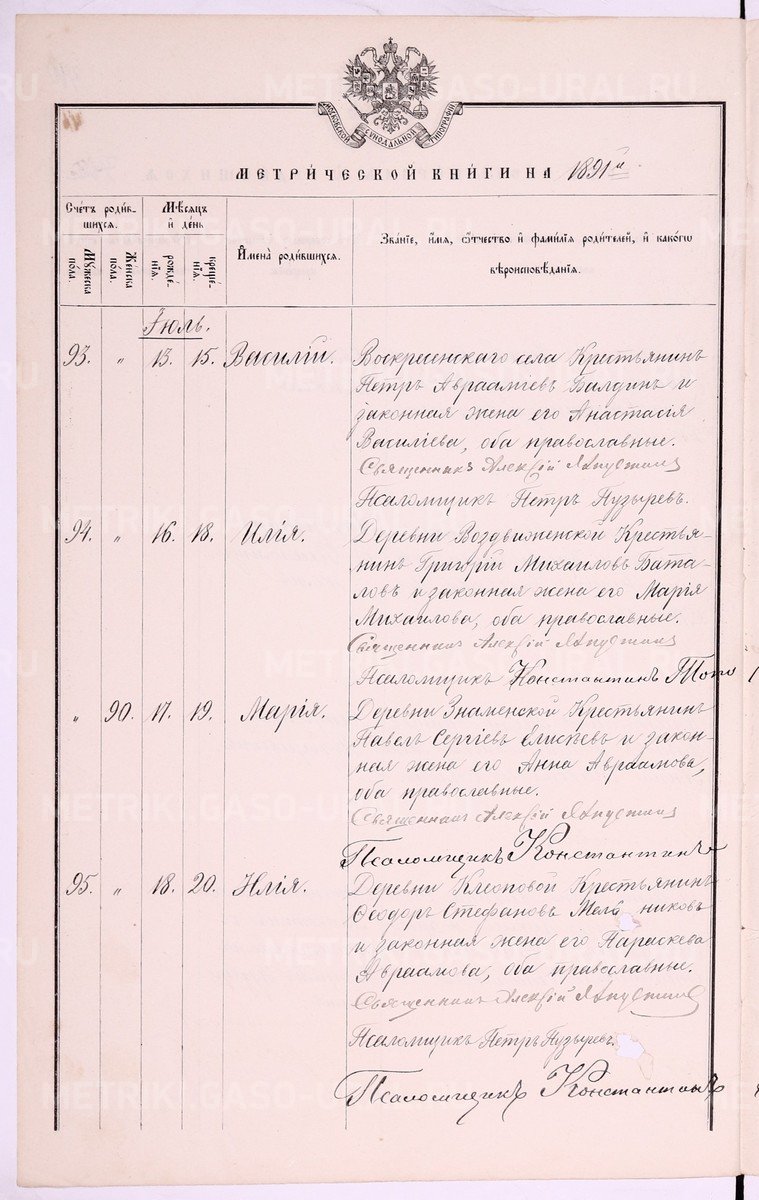 МОСКОВСКОЙ СѴНОДАЛЬНОЙ ТИПОГРАФІИ
МЕТРИ́ЧЕСКОЙ КНИ́ГИ НА 1891 й
Счетъ роди́вшихся.
Мѣ́сяцъ и҆ де́нь
И҆мена̀ роди́вшихся.
Зва́нїе, и҆́мя, ѻ҆́тчество и҆ фами́лїя роди́телей, и҆ како́гѡ вѣроисповѣ́данїя.
Му́жеска по́ла.
Же́нска по́ла.
рожде́нїя.
креще́нїя.
Іюль.
93. " 13. 15. Василій. Воскресенскаго села Крестьянинъ
Петръ Авраамiевъ Балдинъ и
законная жена его Анастасія
Василіева, оба православные.
Священникъ Алексій
Псаломщикъ Петръ Пузыревъ.
94. " 16. 18. Илія. Деревни Воздвиженской Крестья-
нинъ Григорій Михаиловъ Бата-
ловъ и законная жена его Марія
Михаилова, оба православные.
Священникъ Алексій
Псаломщикъ Константинъ
" 90. 17. 19. Марія. Деревни Знаменской Крестьянинъ
Павелъ Сергіевъ Елисѣевъ и закон-
ная жена его Анна Авраамова,
оба православные.
Священникъ Алексій
Псаломщикъ Константинъ
95. " 18. 20. Илія. Деревни Клеоповой Крестьянинъ
Ѳеодоръ Стефановъ Мель никовъ
и законная жена его Параскева
Авраамова, оба православные.
Священникъ Алексій
Псаломщикъ Петръ Пузыревъ.
Псаломщикъ Константинъ